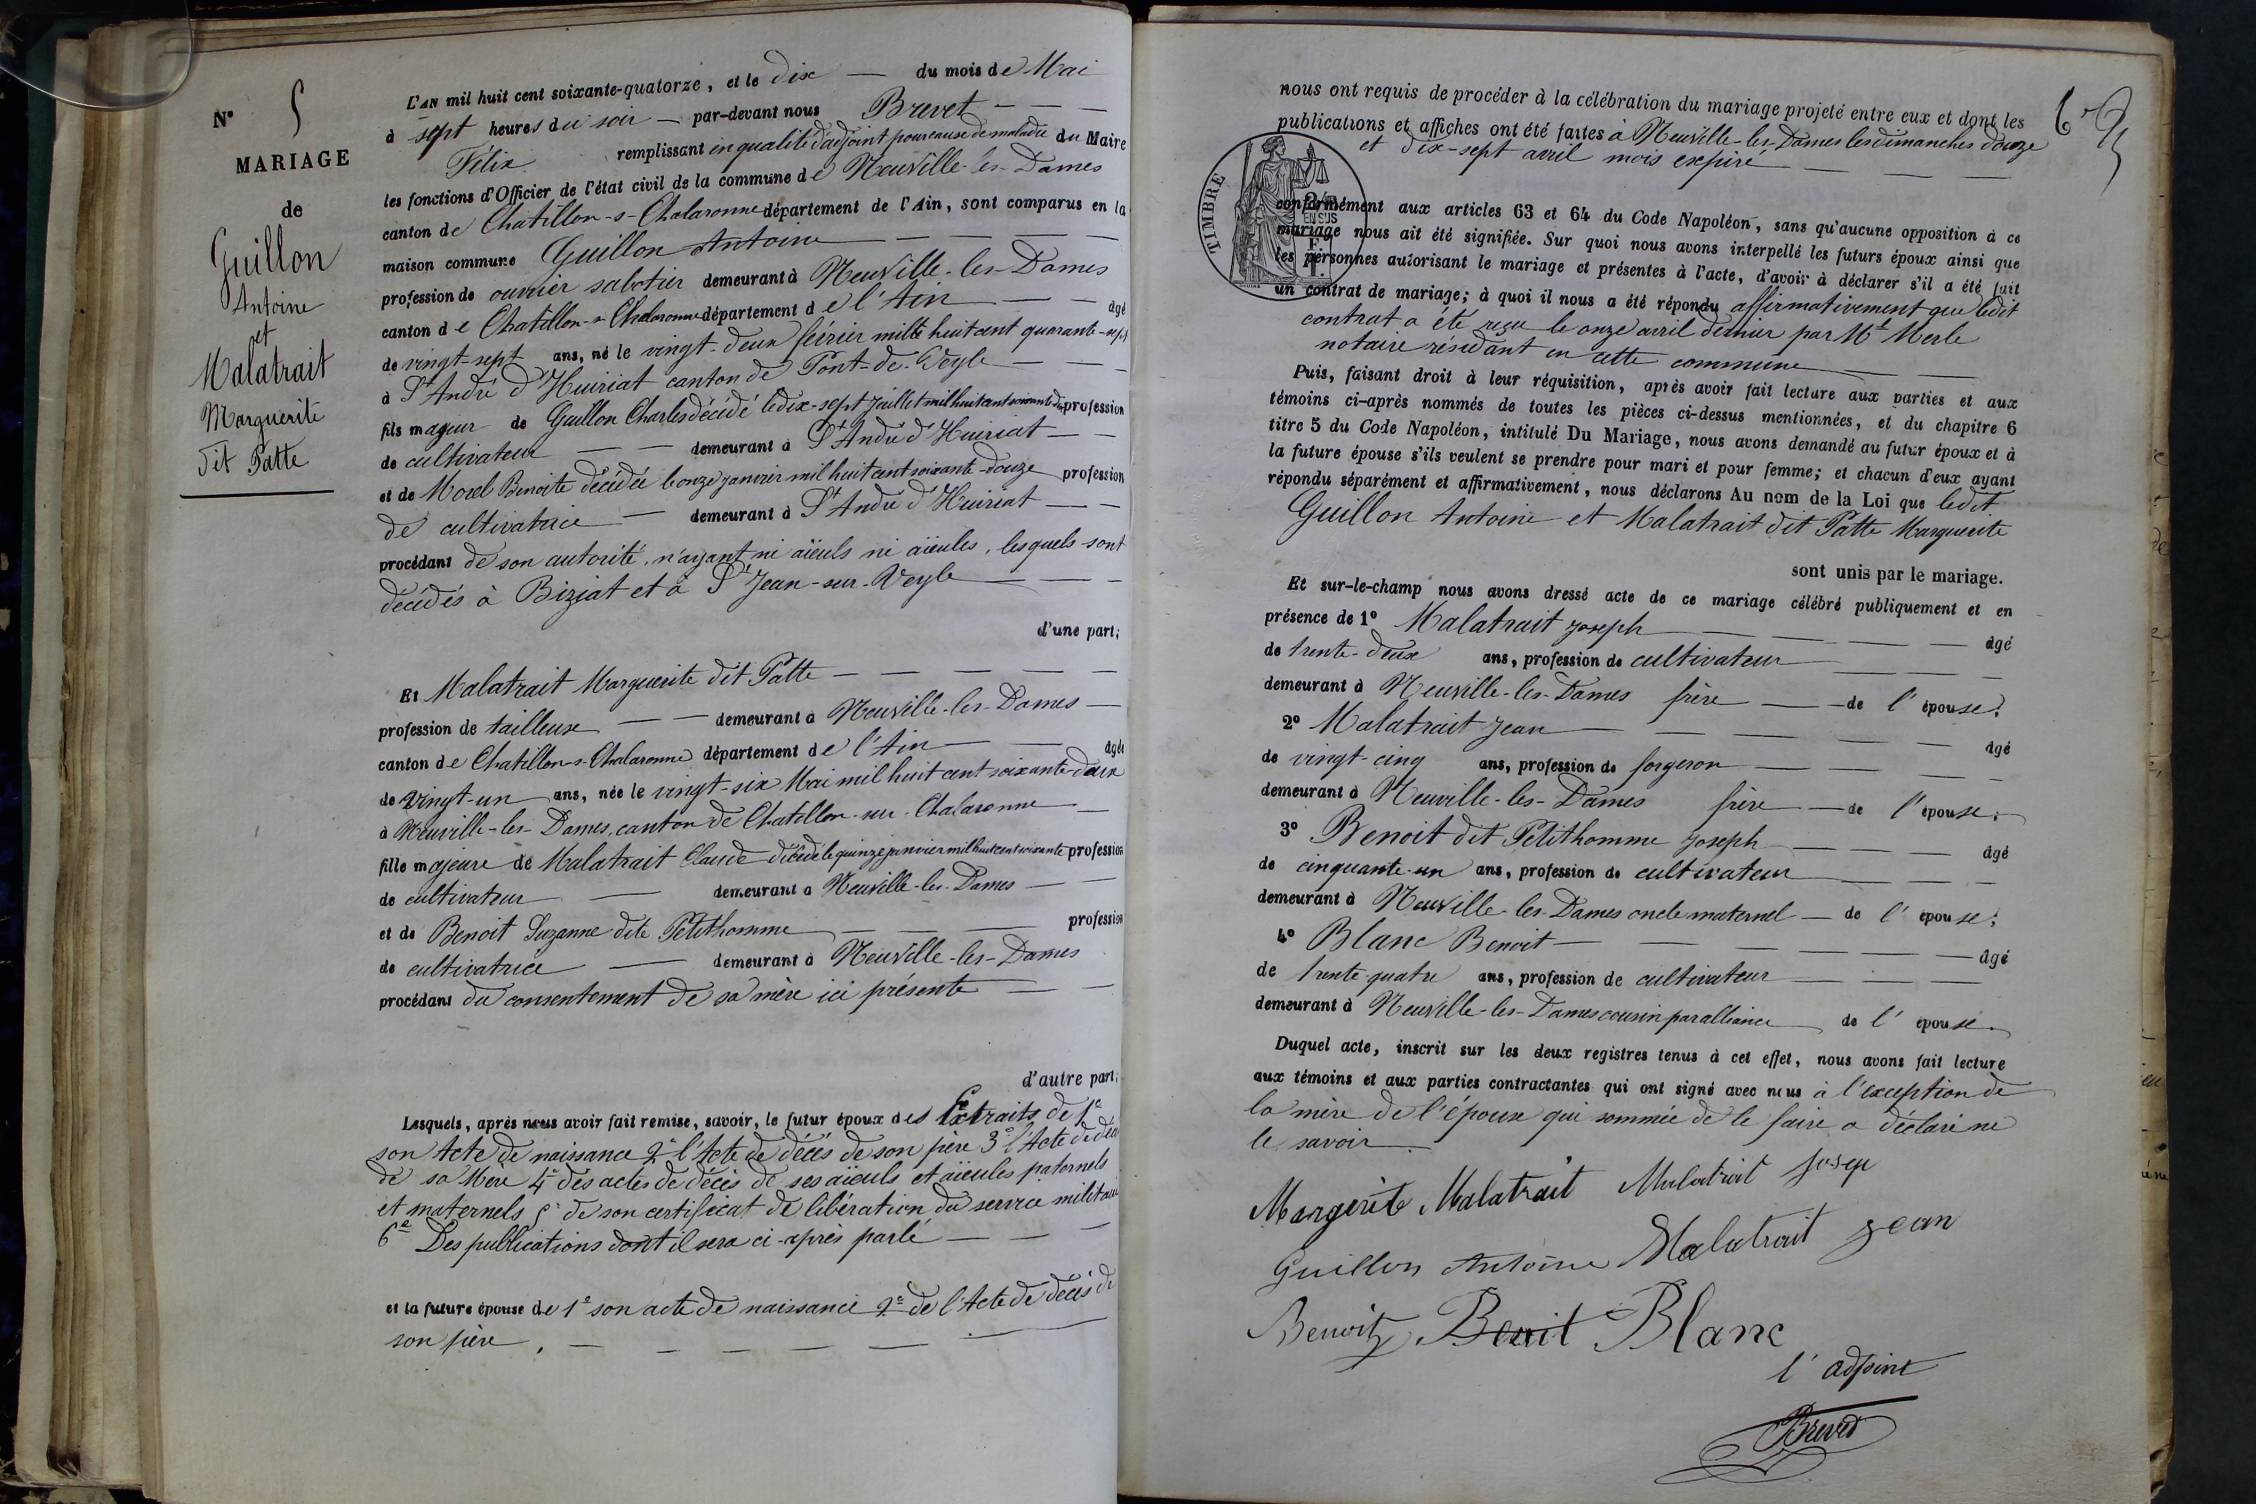 N° 5
MARIAGE
de
Guillon
Antoine
et
Malatrait
Marguerite
dit Patte
L'AN mil huit cent soixante-quatorze, et le dix — du mois de Mai
à sept heures du soir — par-devant nous Brevet — — —
Félix remplissant en qualité d'adjoint pour cause de maladie du Maire
les fonctions d'Officier de l'état civil de la commune de Neuville-les-Dames
canton de Chatillon-s-Chalaronne département de l'Ain, sont comparus en la
maison commune Guillon Antoine — — — —
profession de ouvrier sabotier demeurant à Neuville-les-Dames
canton de Chatillon-s-Chalaronne département de l'Ain — — âgé
de vingt-sept ans, né le vingt-deux février mille huit cent quarante-sept
à St André d'Huiriat canton de Pont-de-Veyle — — —
fils majeur de Guillon Charles décédé le dix-sept Juillet mil huit cent soixante-dix profession
de cultivateur — — demeurant à St André d'Huiriat — —
et de Morel Benoite décédée le onze janvier mil huit cent soixante-douze profession
de cultivatrice — demeurant à St André d'Huiriat — —
procédant de son autorité, n'ayant ni aïeuls ni aïeules, lesquels sont
décédés à Biziat et à St Jean-sur-Veyle — — —
d'une part;
Et Malatrait Marguerite dit Patte — — — — —
profession de tailleuse — — demeurant à Neuville-les-Dames —
canton de Chatillon-s-Chalaronne département de l'Ain — — âgée
de vingt-un ans, née le vingt-six Mai mil huit cent soixante-deux
à Neuville-les-Dames, canton de Chatillon-sur-Chalaronne —
fille majeure de Malatrait Claude décédé le quinze janvier mil huit cent soixante profession
de cultivateur — demeurant à Neuville-les-Dames — —
et de Benoit Suzanne dite Petithomme — — — profession
de cultivatrice — demeurant à Neuville-les-Dames
procédant du consentement de sa mère ici présente — —
d'autre part;
Lesquels, après nous avoir fait remise, savoir, le futur époux des Extraits de 1°
son Acte de naissance 2° l'Acte de décès de son père 3° l'Acte de décès
de sa Mère 4° des actes de décès de ses aïeuls et aïeules paternels
et maternels 5° de son certificat de libération du service militaire
6° Des publications dont il sera ci-après parlé — — —
et la future épouse de 1° son acte de naissance 2° de l'Acte de décès de
son père. — — — — —
6
nous ont requis de procéder à la célébration du mariage projeté entre eux et dont les
publications et affiches ont été faites à Neuville-les-Dames les dimanches douze
et dix-sept avril mois expiré — — —
TIMBRE
2/10 EN SUS
1 F.
conformément aux articles 63 et 64 du Code Napoléon, sans qu'aucune opposition à ce
mariage nous ait été signifiée. Sur quoi nous avons interpellé les futurs époux ainsi que
les personnes autorisant le mariage et présentes à l'acte, d'avoir à déclarer s'il a été fait
un contrat de mariage; à quoi il nous a été répondu affirmativement que ledit
contrat a été reçu le onze avril dernier par Me Merle
notaire résidant en cette commune — —
Puis, faisant droit à leur réquisition, après avoir fait lecture aux parties et aux
témoins ci-après nommés de toutes les pièces ci-dessus mentionnées, et du chapitre 6
titre 5 du Code Napoléon, intitulé Du Mariage, nous avons demandé au futur époux et à
la future épouse s'ils veulent se prendre pour mari et pour femme; et chacun d'eux ayant
répondu séparément et affirmativement, nous déclarons Au nom de la Loi que ledit
Guillon Antoine et Malatrait dit Patte Marguerite
sont unis par le mariage.
Et sur-le-champ nous avons dressé acte de ce mariage célébré publiquement et en
présence de 1° Malatrait Joseph — — — — âgé
de trente-deux ans, profession de cultivateur — — —
demeurant à Neuville-les-Dames frère — de l'épouse;
2° Malatrait Jean — — — — — âgé
de vingt-cinq ans, profession de forgeron — — — —
demeurant à Neuville-les-Dames frère — de l'épouse;
3° Benoit dit Petithomme Joseph — — — âgé
de cinquante-un ans, profession de cultivateur — — —
demeurant à Neuville-les-Dames oncle maternel — de l'épouse;
4° Blanc Benoit — — — — — âgé
de trente-quatre ans, profession de cultivateur — — —
demeurant à Neuville-les-Dames cousin par alliance — de l'épouse.
Duquel acte, inscrit sur les deux registres tenus à cet effet, nous avons fait lecture
aux témoins et aux parties contractantes qui ont signé avec nous à l'exception de
la mère de l'épouse qui sommée de le faire a déclaré ne
le savoir.
Margerite Malatrait Malatrait Josep
Guillon Antoine Malatrait Jean
Benoit Benoit Blanc
l'adjoint
Brevet